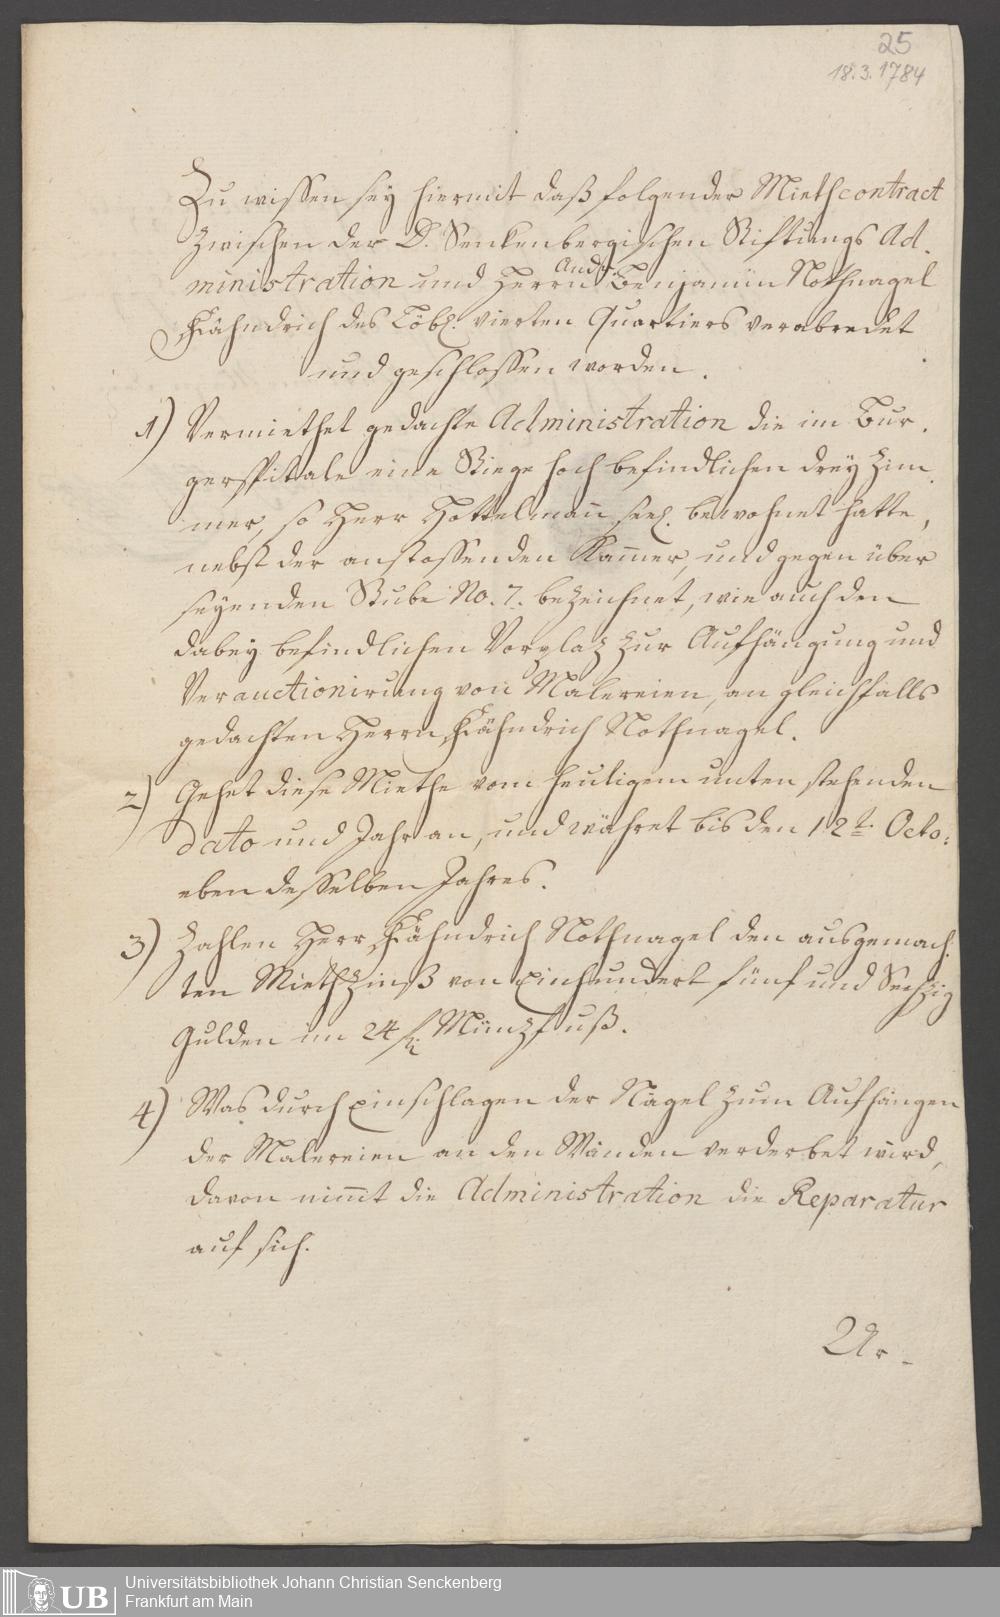 25
18.3.1784
Zu wissen sey hiermit daß folgender Miethcontract
zwischen der D. Senkenbergischen Stiftungs Ad-
ministration und Herrn Andr. Benjamin Nothnagel
Fähndrich des Löbl. vierten Quartiers verabredet
und geschlossen worden.
1) Vermiethet gedachte Administration die im Bur-
gerspitale eine Stiege hoch befindlichen drey Zim-
mer, so Herr Hottelman̄ seel. bewohnet hatte,
nebst der anstossenden Kam̄er, und gegen über
seyenden Stube No. 7. bezeichnet, wie auch den
dabey befindlichen Vorplatz zur Aufhängung und
Verauctionirung von Malereien, an gleichfalls
gedachten Herrn Fähndrich Nothnagel.
2) Gehet diese Miethe vom heutigem unten stehenden
dato und Jahr an, und währet bis den 12t. Octo:
eben desselben Jahres.
3) Zahlen Herr Fähndrich Nothnagel den ausgemach-
ten Miethzinß von Einhundert fünf und Sechzig
Gulden im 24 fl. Münzfuß.
4) Was durch Einschlagen der Nägel zum Aufhängen
der Malereien an den Wänden verderbet wird,
davon nim̄t die Administration die Reparatur
auf sich.
Ur-
UB
Universitätsbibliothek Johann Christian Senckenberg
Frankfurt am Main